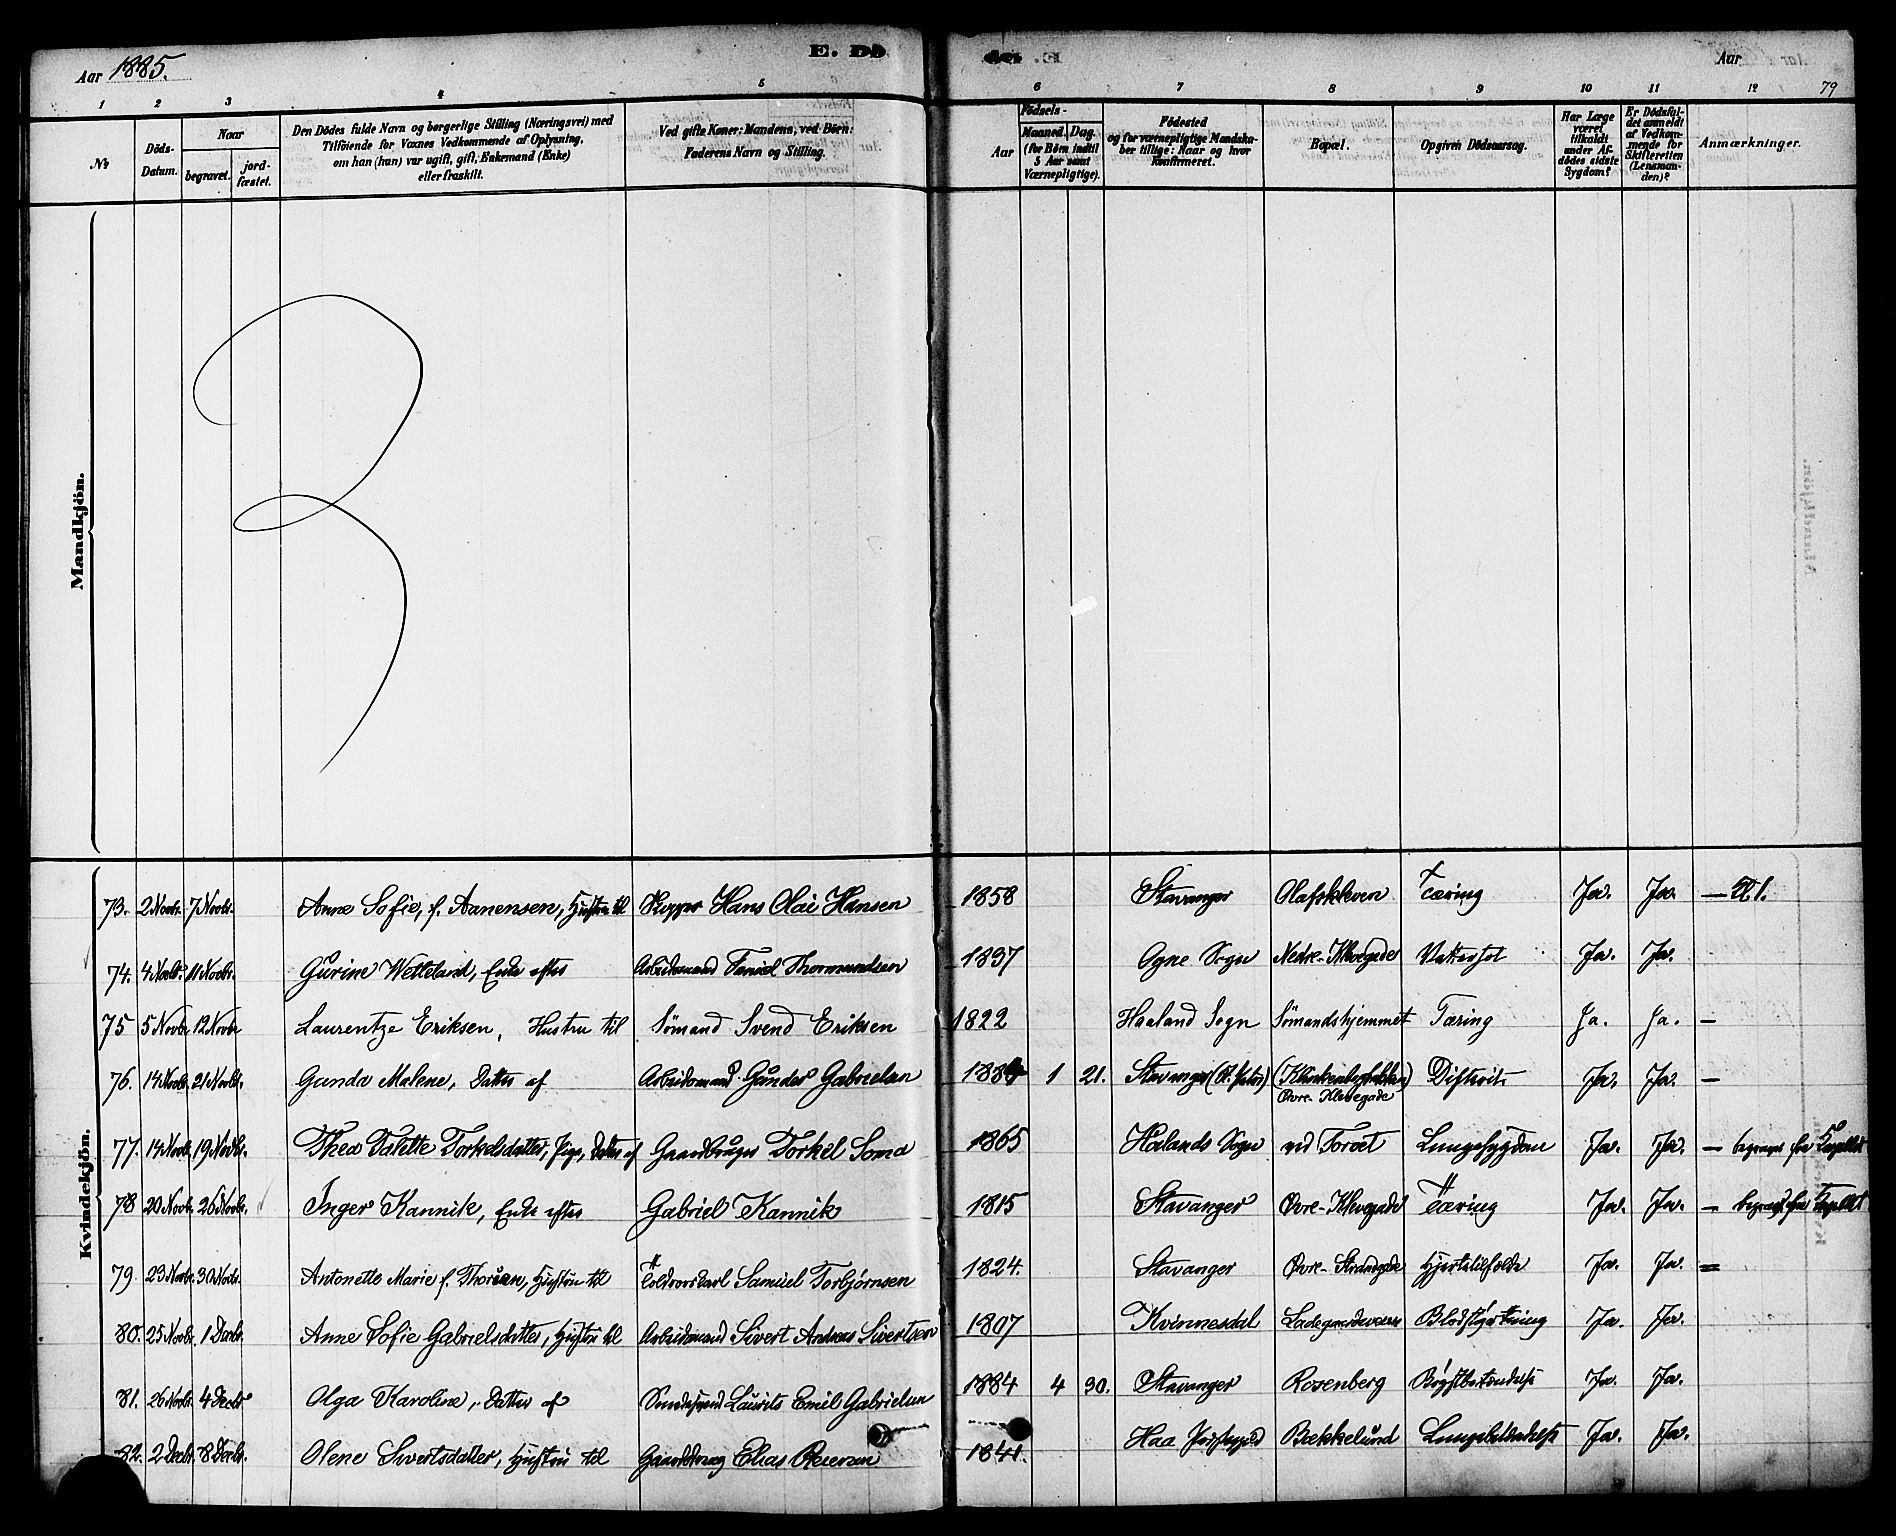 Aar 1885.
E. Dö
Aar
79
1 2 3 4 5 6 7 8 9 10 11 12
No
Döds-Datum.
Naar
begravet.
jordfæstet.
Den Dödes fulde Navn og borgerlige Stilling (Næringsvei) med
Tilföiende for Voxnes Vedkommende af Oplysning,
om han (hun) var ugift, gift, Enkemand (Enke)
eller fraskilt.
Ved gifte Koner: Mandens, ved Börn:
Faderens Navn og Stilling.
Födsels-
Aar
Maaned. Dag.
(for Börn indtil
5 Aar samt
Værnepligtige).
Födested
og for værnepligtige Mandska-
ber tillige: Naar og hvor
Konfirmeret.
Bopæl.
Opgiven Dödsaarsag.
Har Læge
været
tilkaldt
under Af-
dödes sidste
Sygdom?
Er Dödsfal-
det anmeldt
af Vedkom-
mende for
Skifteretten
(Lensman-
den)?
Anmærkninger.
Mandkjön.
Kvindekjön.
73. 2 Novbr. 7 Novbr. Anne Sofie, f. Aanensen, Hustru til Skipper Hans Olai Hansen 1858 Stavanger Olafskleven Tæring Ja. Ja. —
74. 4 Novbr. 11 Novbr. Gurine Wetteland, Enke efter Arbeidsmand Daniel Thormundsen 1837 Ogne Sogn Nedre-Klevegade Vattersot Ja. Ja.
75 5 Novbr 12 Novbr Laurentze Eriksen, Hustru til Sömand Svend Eriksen 1822 Haaland Sogn Sömandshjemmet Tæring Ja. Ja. —
76. 14 Novbr. 21 Novbr. Gunda Malene, Datter af Arbeidsmand Gunder Gabrielsen 1884 1 21. Stavanger (St. Petri) Øvre-Klevegade Difterit Ja. Ja. —
77. 14 Novbr. 19 Novbr. Thea Talette Torkelsdatter, Pige, Datter af Gaardbruger Torkel Soma 1865 Hølands Sogn ved Torvet Lungesygdom Ja. Ja. — begravet fra Kapellet
78 20 Novbr. 26 Novbr. Inger Kannik, Enke efter Gabriel Kannik 1815 Stavanger Øvre-Klevegade Tæring Ja. Ja. — begravet fra Kapellet
79 23 Novbr. 30 Novbr. Antonette Marie f. Thorsen, Hustru til Toldvorskarl Samuel Torbjørnsen 1824. Stavanger Øvre-Strandgade Hjertetilfælde Ja. Ja. =
80. 25 Novbr. 1 Decbr. Anne Sofie Gabrielsdatter, Hustru til Arbeidsmand Sivert Andreas Sivertsen 1807 Kvinnesdal Ladegaardsveien Blodstyrtning Ja. Ja.
81. 26 Novbr. 4 Decbr Olga Karoline, Datter af Laurits Emil Gabrielsen 1884 4 30. Stavanger Rosenberg Brystbetændelse Ja. Ja.
82. 2 Decbr. 8 Decbr. Olene Sivertsdatter, Hustru til Elias Reiersen 1841. Haa Præstegjeld Bækkelund Lungebetændelse Ja. Ja.